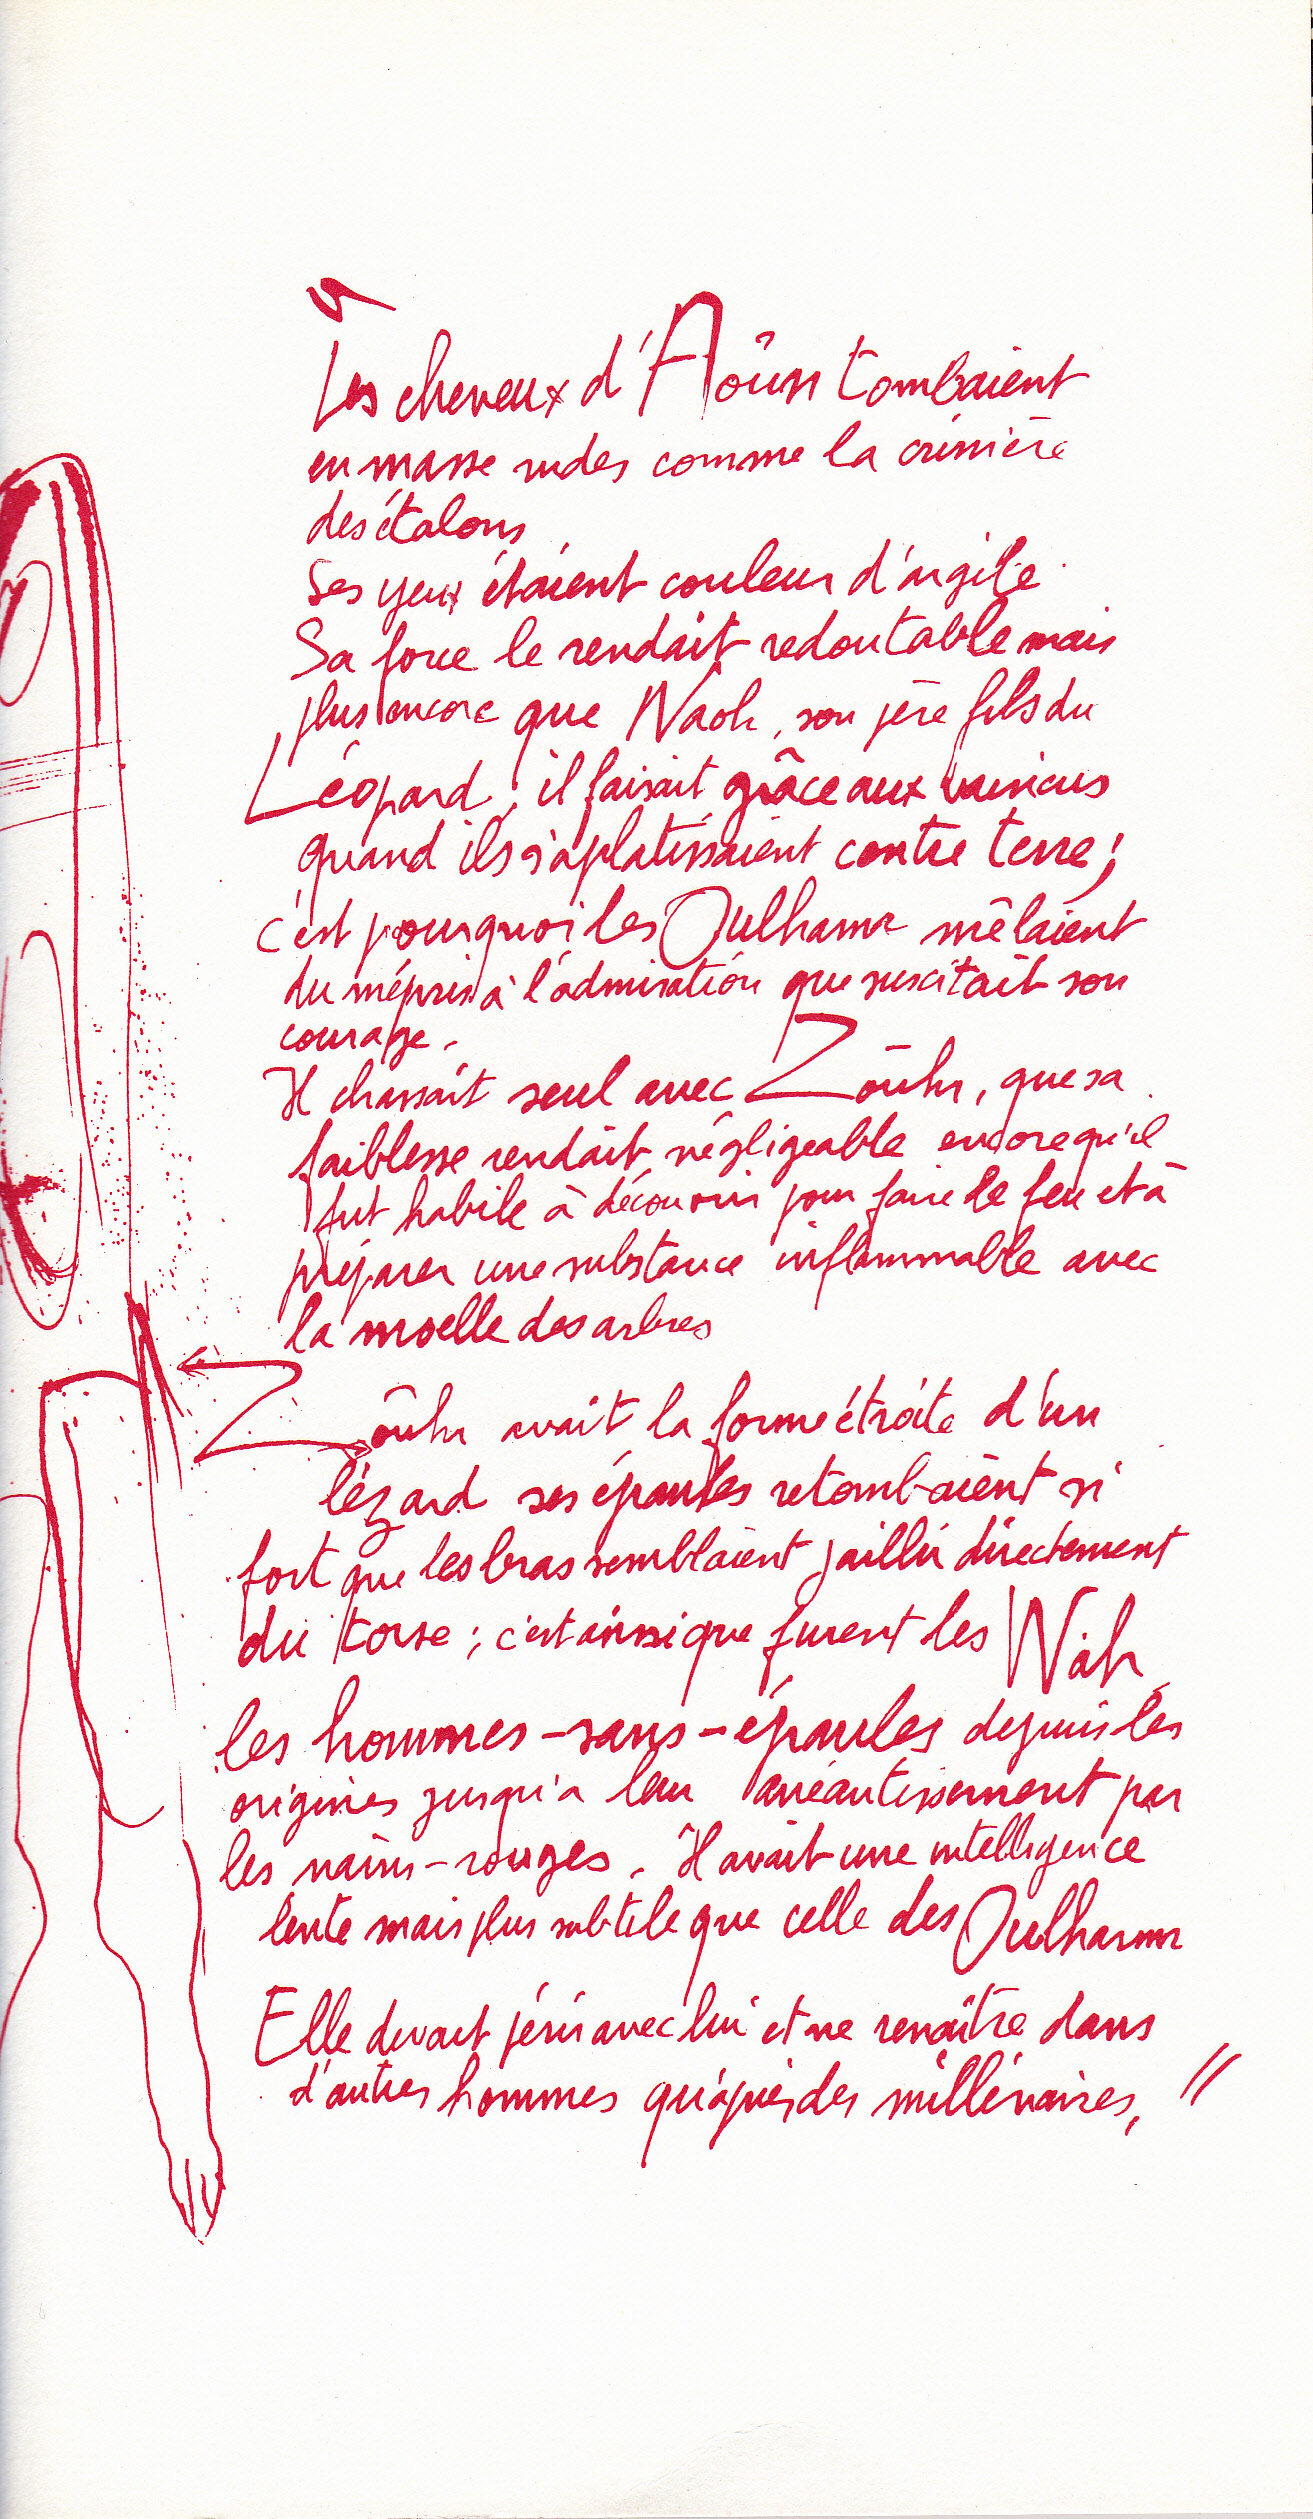 Les cheveux d'Aoûn tombaient
en masse rudes comme la crinière
des étalons
Ses yeux étaient couleur d'argile
Sa force le rendait redoutable mais
plus encore que Naoh, son père fils du
Léopard ; il faisait grâce aux vaincus
quand ils s'aplatissaient contre terre ;
c'est pourquoi les Oulhamr mêlaient
du mépris à l'admiration que suscitait son
courage.
Il chassait seul avec Zoûhr, que sa
faiblesse rendait négligeable encore qu'il
fut habile à découvrir pour faire le feu et à
préparer une substance inflammable avec
la moelle des arbres
Zoûhr avait la forme étroite d'un
lézard ses épaules retombaient si
fort que les bras semblaient jaillir directement
du torse ; c'est ainsi que furent les Wah
les hommes-sans-épaules depuis les
origines jusqu'à leur anéantissement par
les nains-rouges. Il avait une intelligence
lente mais plus subtile que celle des Oulhamr
Elle devait périr avec lui et ne renaître dans
d'autres hommes qu'après des millénaires, "